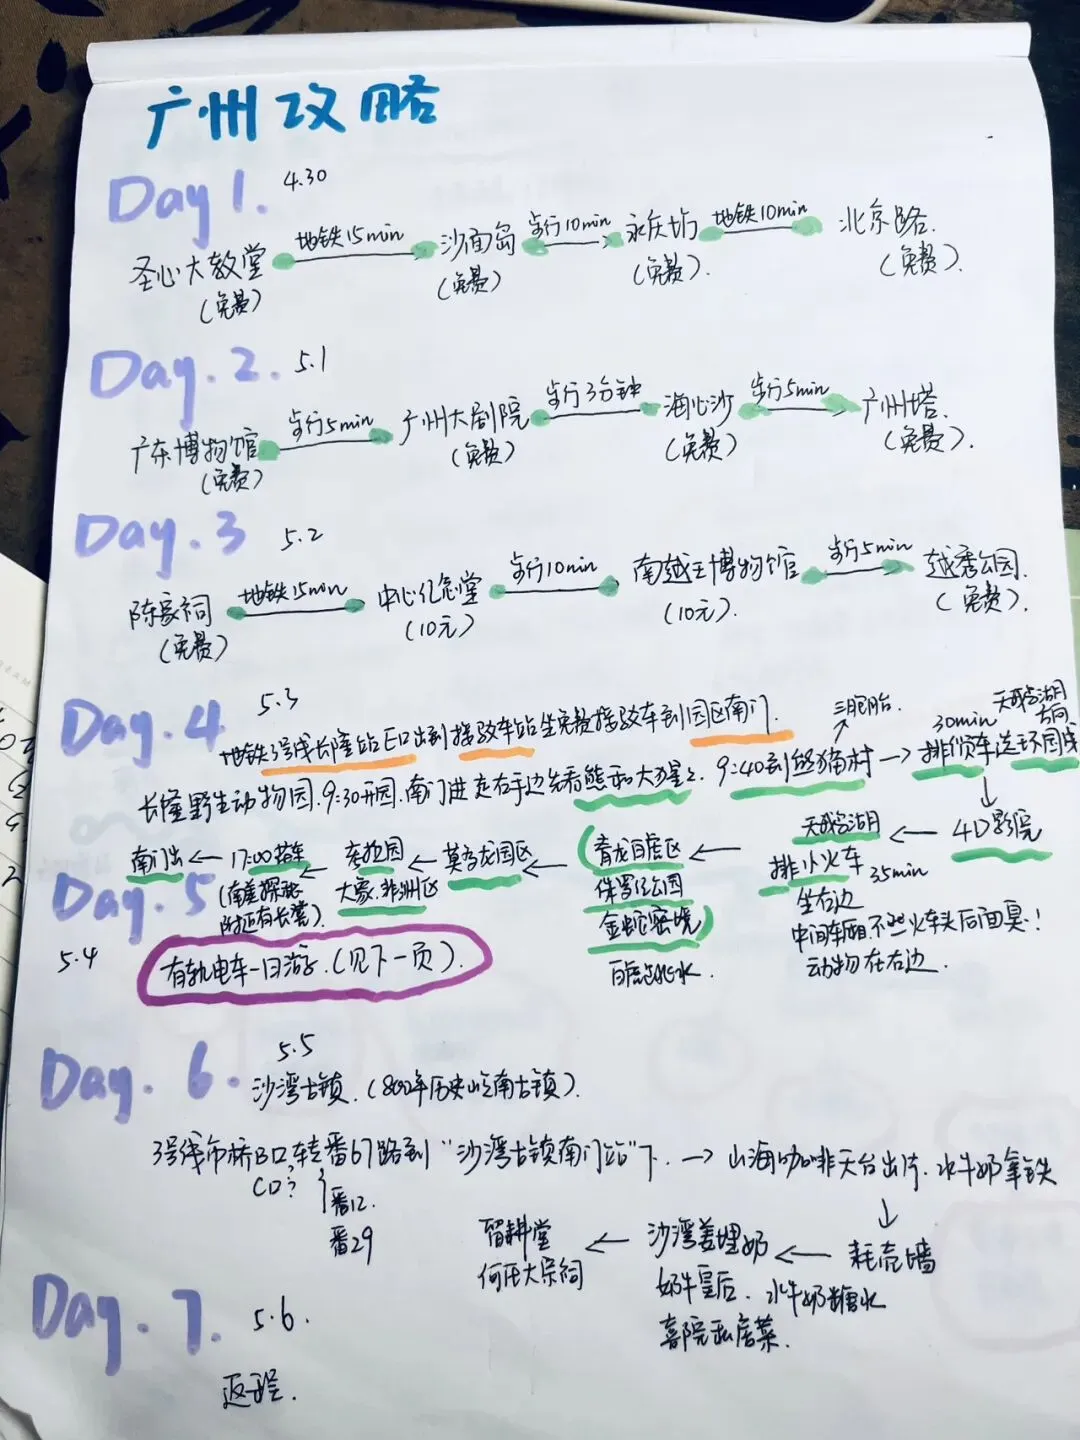 广州攻略
Day 1. 4.30
圣心大教堂 地铁15min 沙面岛 步行10min 永庆坊 地铁10min 北京路.
(免费) (免费) (免费). (免费).
Day. 2. 5.1
广东博物馆 步行5min 广州大剧院 步行3分钟 海心沙 步行5min 广州塔.
(免费) (免费) (免费) (免费).
Day. 3 5.2
陈家祠 地铁15min 中心纪念堂 步行10min 南越王博物馆 步行5min 越秀公园.
(免费) (10元) (10元). (免费).
Day. 4 5.3
地铁3号线长隆站E口出到接驳车站坐免费接驳车到园区南门.
三胞胎.
长隆野生动物园.9:30开园.南门进走右手边先看熊和大猩猩. 9:40到熊猫村 → 30min 排缆车送环园线
天鹅湖
方向
4D影院
← 天鹅湖
排小火车 35min
坐右边
中间车厢不然火车头后面臭!
动物在右边.
← (青龙白虎区
金蛇密境)
白虎跳水.
← 莫高龙园区
← 考拉园
大象.非洲区
← 17:00花车
← 南门出
Day. 5
5.4
有轨电车一日游.(见下一页).
Day. 6. 5.5
沙湾古镇.(800年历史岭南古镇).
3号线市桥B口转番67路到“沙湾古镇南门站”下. → 山海咖啡天台出片.水牛奶拿铁
CD? 番12.
番29
↓
耗壳墙
← 沙湾姜埋奶
奶牛皇后. 水牛奶糖水
喜院私房菜.
← 留耕堂
何氏大宗祠
Day. 7. 5.6.
返程.